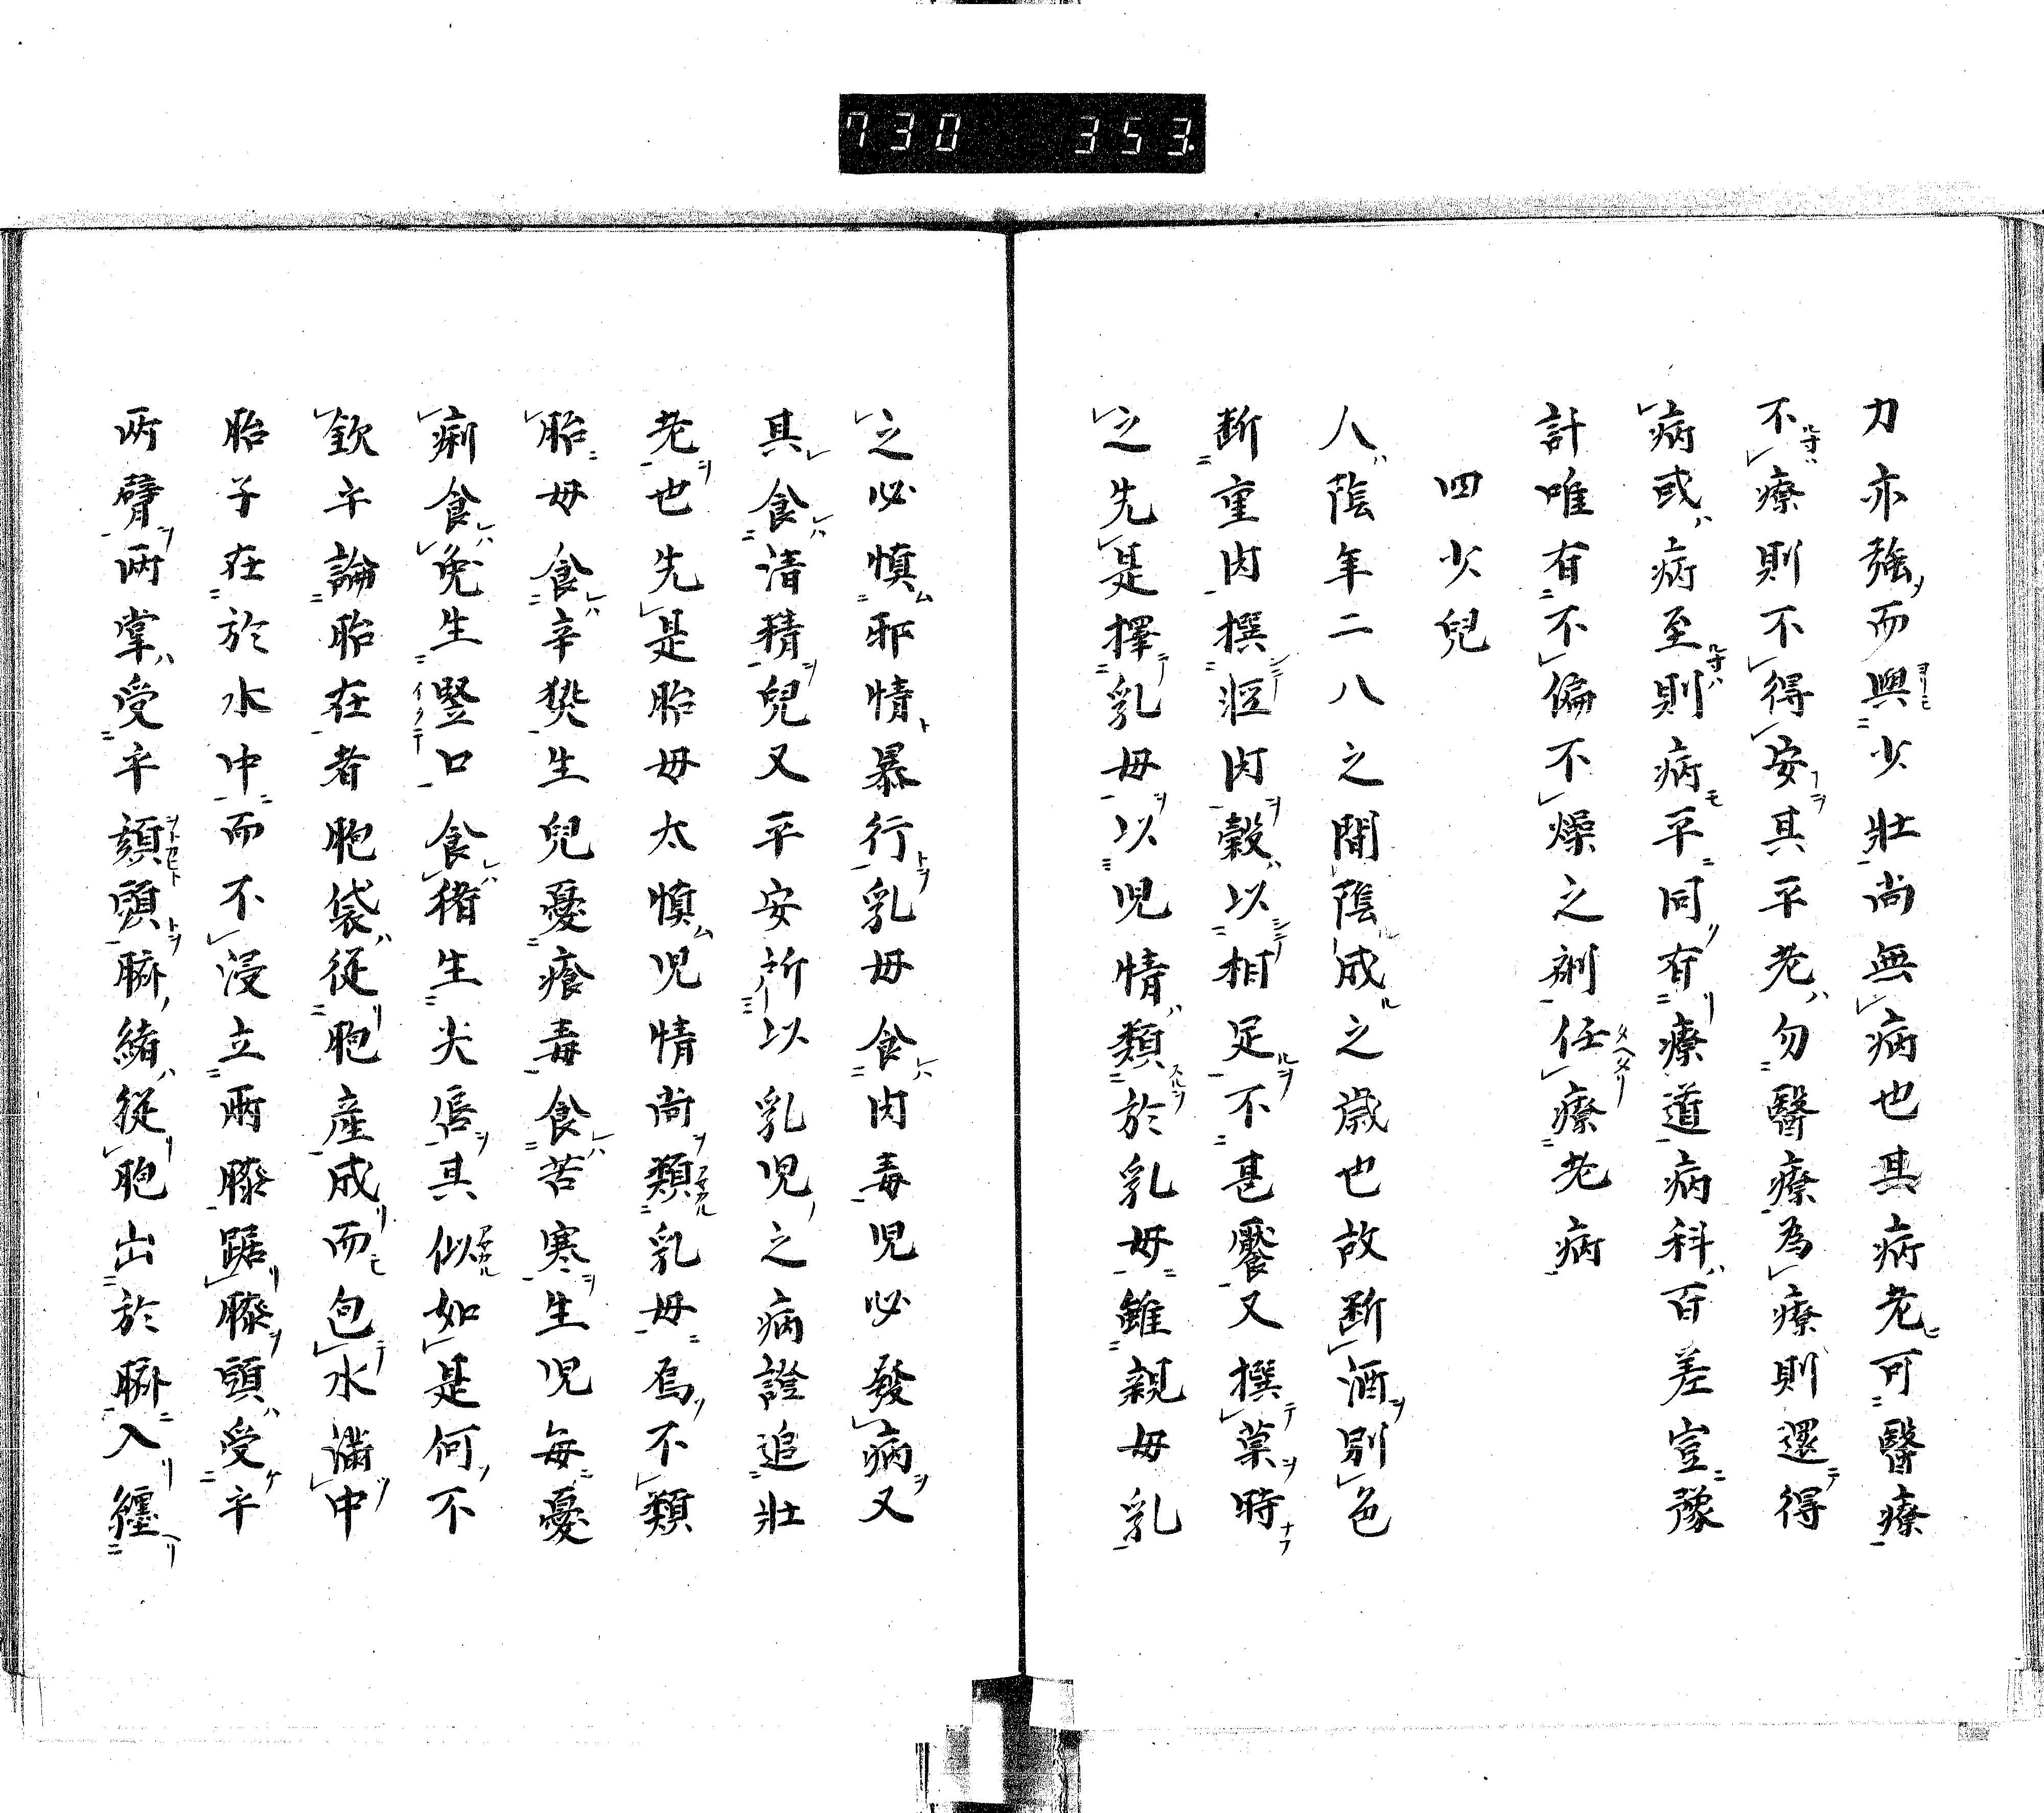 730 353
力亦強而與少壯尚無病也其病老可醫療
不療則不得安其平老勿醫療為療則還得
病或病至則病平同有療道病科百差豈豫
計唯有不偏不燥之劑任療老病
四少兒
人陰年二八之間陰成之歳也故断酒別色
断重肉撰 肉穀以相足不甚饜又撰菓時
之先是擇乳母以児情類於乳母雖親母乳
之必慎邪情暴行乳母食肉毒児必發病又
其食清精兒又平安所以乳児之病證追壯
老也先是胎母太慎児情尚類乳母焉不類
胎母食辛 生兒憂瘡毒食苦寒生児毎憂
痢食兔生豎口食猪生尖 其似如是何不
欽乎論胎在者胞袋從胞産成而包水滿中
胎子在於水中而不浸立兩膝踞膝頭受乎
兩臂兩掌受乎頬頭臍緒從胞出於臍入纏